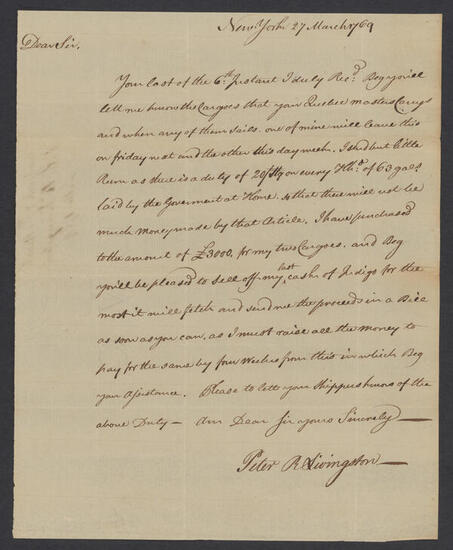 New York 27 March 1769
Dear Sir,
Your last of the 6th Instant I duly Recd Beg you'll
let me know the Cargoes that your Quebec masters Carrys
and when any of them Sails. one of mine will leave this
on friday next and the other this day week. I shd but little
Rum as there is a duty of 20/Stg on every Hhd of 63 gals
laid by the Goverment at Home. so that there will not be
much money made by that Article. I have purchased
to the amount of £3000, for my two Cargoes. and Beg
you'll be pleased to sell off my last cask of Indigo for the
most it will fetch and send me the proceeds in a Bill
as soon as you can, as I must raise all the money to
pay for the same by four Weeks from this in which Beg
your assistance. Please to lett your Shippers know of the
above Duty — Am Dear Sir yours Sincerely —
Peter R Livingston —